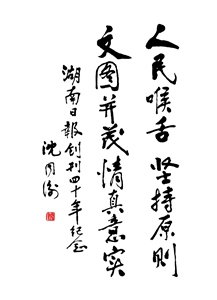 人民喉舌 坚持原则
文图并茂情真意实
湖南日报创刊四十年纪念
沈同衡